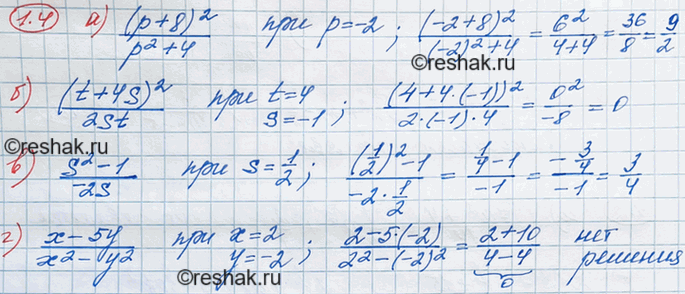 1.4 а) (p+8)²/(p²+4) при p=-2; (-2+8)²/((-2)²+4) = 6²/(4+4) = 36/8 = 9/2
©reshak.ru
б) (t+4s)²/(2st) при t=4 s=-1; (4+4·(-1))²/(2·(-1)·4) = 0²/(-8) = 0
в) (s²-1)/(-2s) при s=1/2; ((1/2)²-1)/(-2·1/2) = (1/4-1)/(-1) = (-3/4)/(-1) = 3/4
г) (x-5y)/(x²-y²) при x=2 y=-2; (2-5·(-2))/(2²-(-2)²) = (2+10)/(4-4) нет решения
0
©reshak.ru